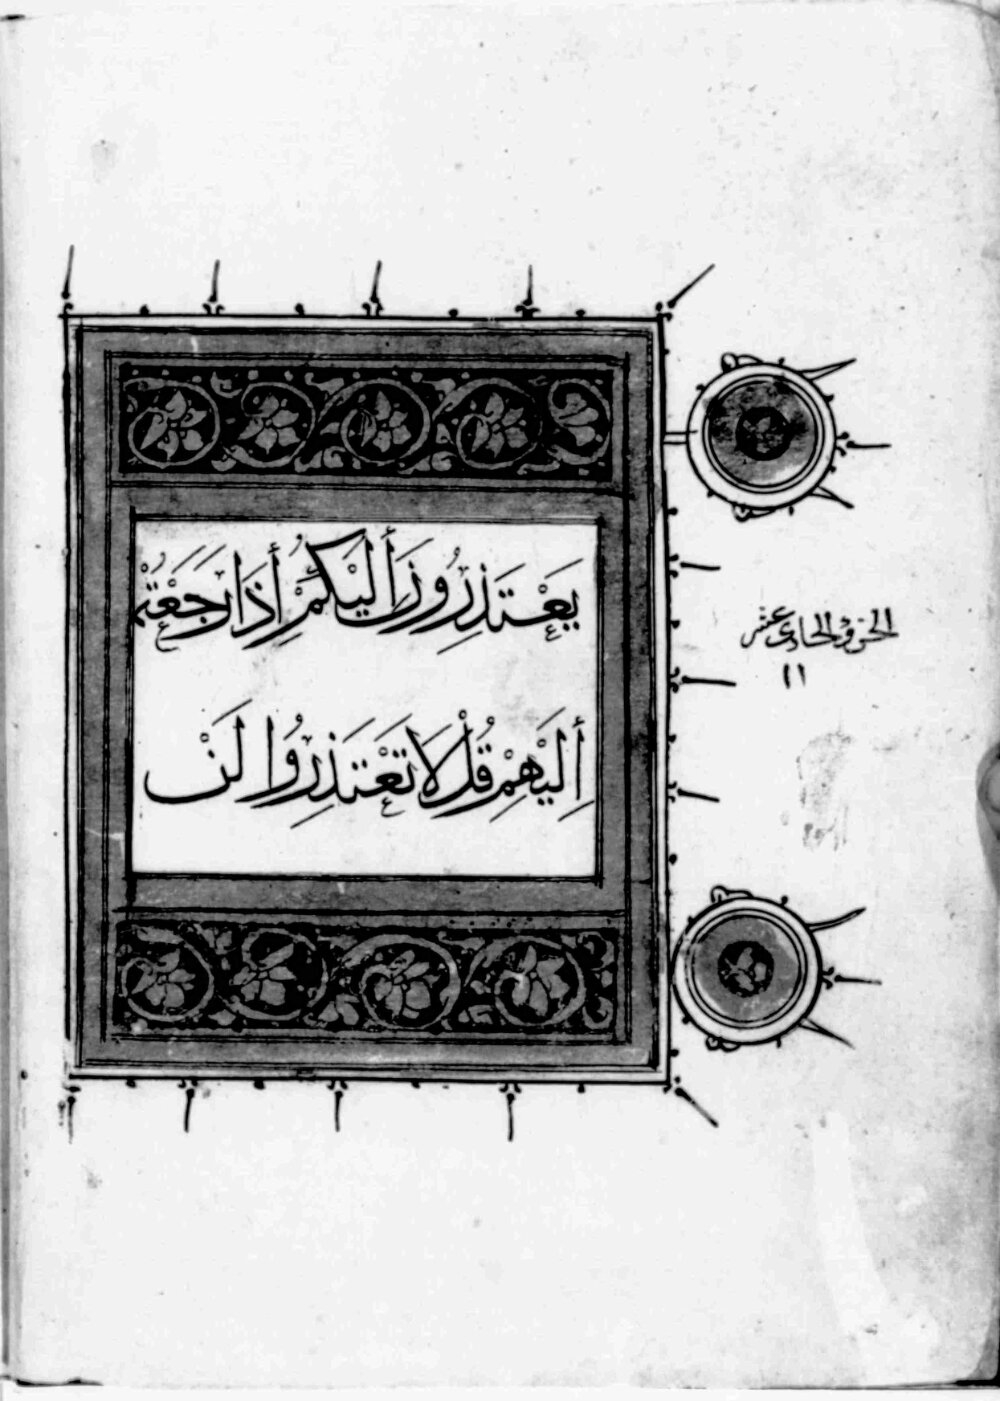 يَعْتَذِرُونَ أِلَيْكُمْ أِذَا رَجَعْتُمْ
أِلَيْهِمْ قُلْ لَا تَعْتَذِرُوا لَنْ
الجزؤ الحادي عشر
١١